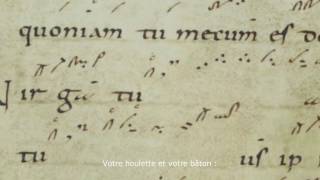 quoniam tu mecum es do
ir ga tu
tu us ip
Votre houlette et votre bâton :